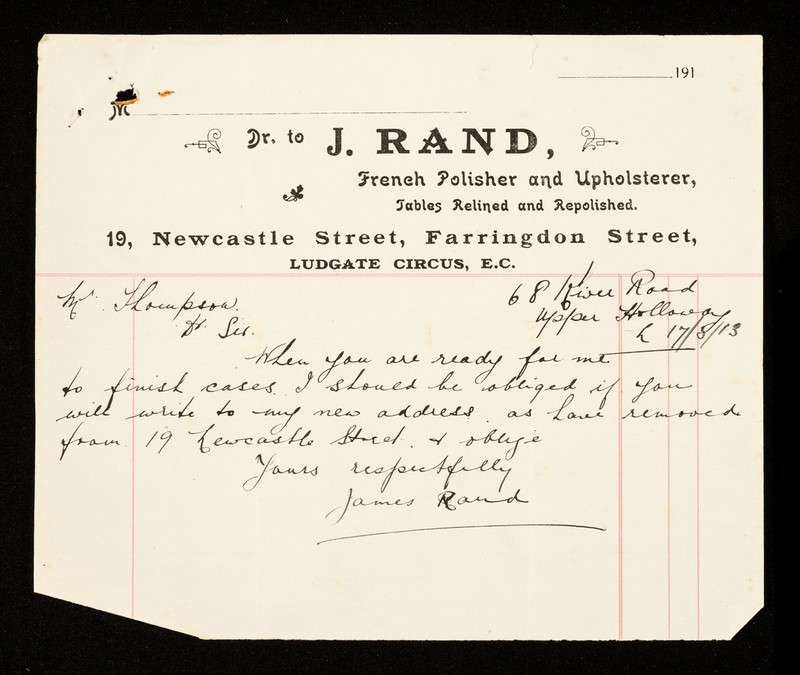 191
M
Dr. to J. RAND,
French Polisher and Upholsterer,
Tables Relined and Repolished.
19, Newcastle Street, Farringdon Street,
LUDGATE CIRCUS, E.C.
68 River Road
Upper Holloway
17/8/13
Mr. Thompson.
Dr Sir.
When you are ready for me
to finish cases. I should be obliged if you
will write to my new address. as have removed
from 19 Newcastle Street. & oblige
Yours respectfully
James Rand